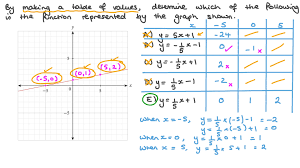 By making a table of values, determine which of the following
is the function represented by the graph shown.
x -5 0 5
A) y = 5x + 1 -24
B) y = -1/5 x - 1 0 -1 x
C) y = -1/5 x + 1 2 x
D) y = 1/5 x - 1 -2 x
E) y = 1/5 x + 1 0 1 2
(-5,0) (0,1) (5,2)
when x = -5, y = 1/5 x(-5) - 1 = -2
y = 1/5 x(-5) + 1 = 0
when x = 0, y = 1/5 x 0 + 1 = 1
when x = 5, y = 1/5 x 5 + 1 = 2